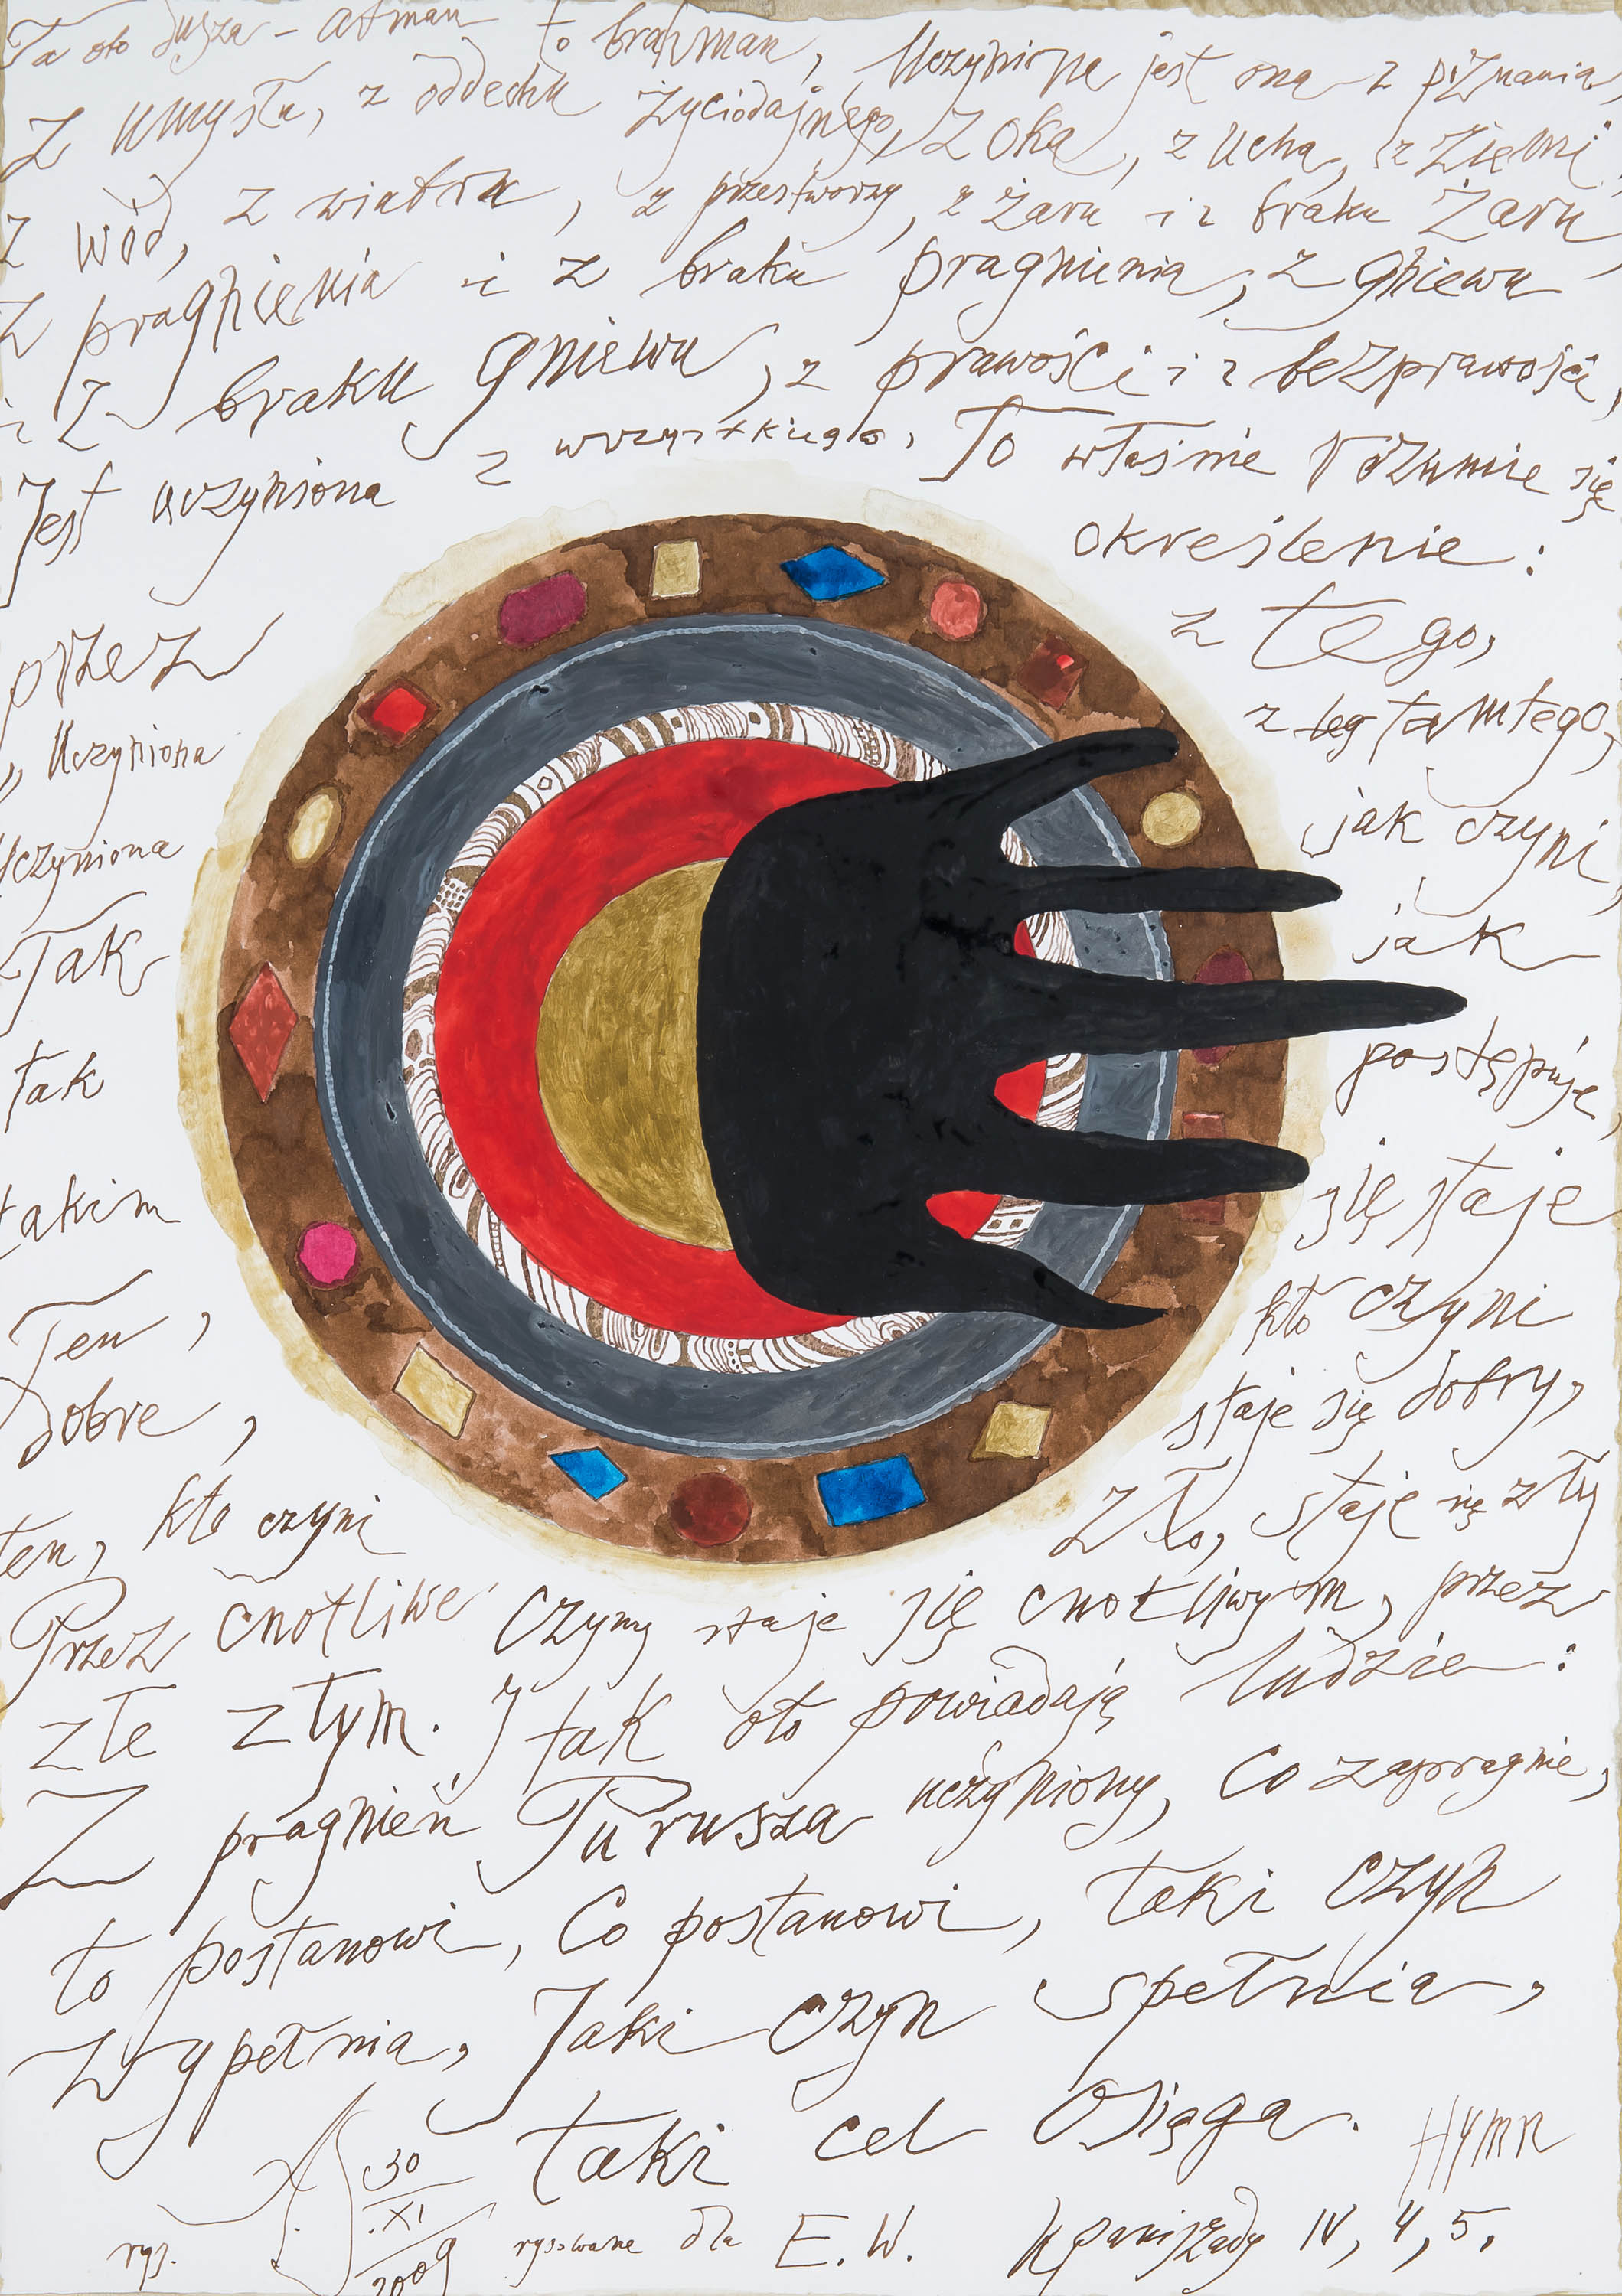 Ta oto dusza - atman to brahman, Uczyniona jest ona z poznania,
z umysłu, z oddechu życiodajnego, z oka, z ucha, z ziemi,
z wód, z wiatru, z przestworzy, z żaru i z braku żaru
z pragnienia i z braku pragnienia, z gniewu
i z braku gniewu, z prawości i z bezprawości,
Jest uczyniona z wszystkiego. To właśnie rozumie się
przez określenie:
„Uczyniona z tego,
Uczyniona z teg tamtego,
Tak jak czyni,
tak jak postępuje,
takim się staje
Ten, kto czyni
dobre, staje się dobry,
ten, kto czyni zło, staje się zły
Przez cnotliwe czyny staje się cnotliwym, przez
złe złym. I tak oto powiadają ludzie:
Z pragnień Purusza uczyniony, Co zapragnie,
to postanowi, Co postanowi, taki czyn
wypełnia, Jaki czyn spełnia,
taki cel osiąga.
Hymn
rys. 30 XI 2009 rysowane dla E. W. Upaniszady IV, 4, 5.